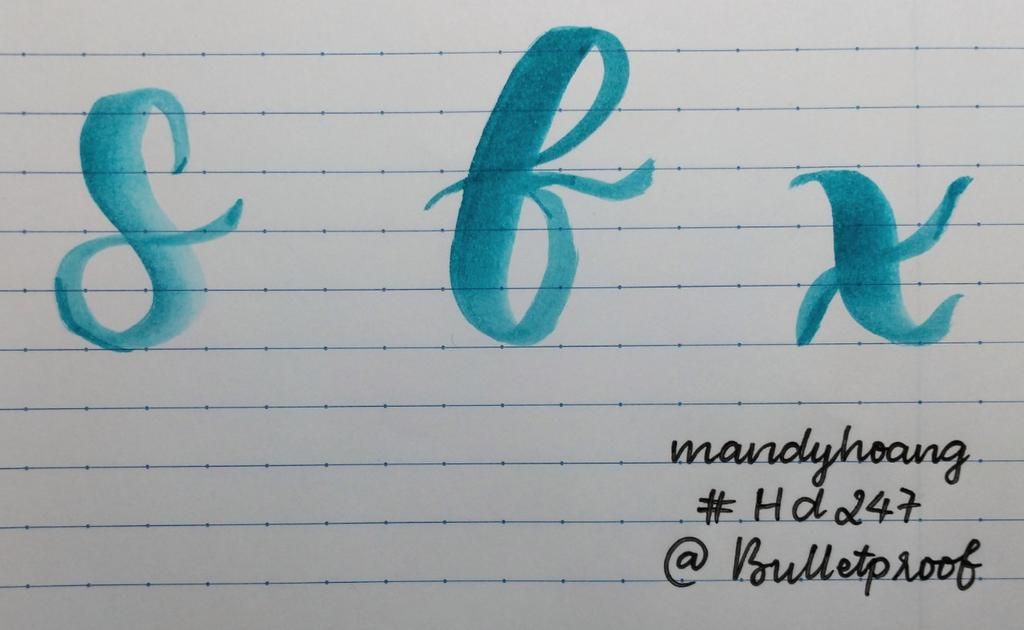 s f x
mandyhoang
# Hd247
@ Bulletproof